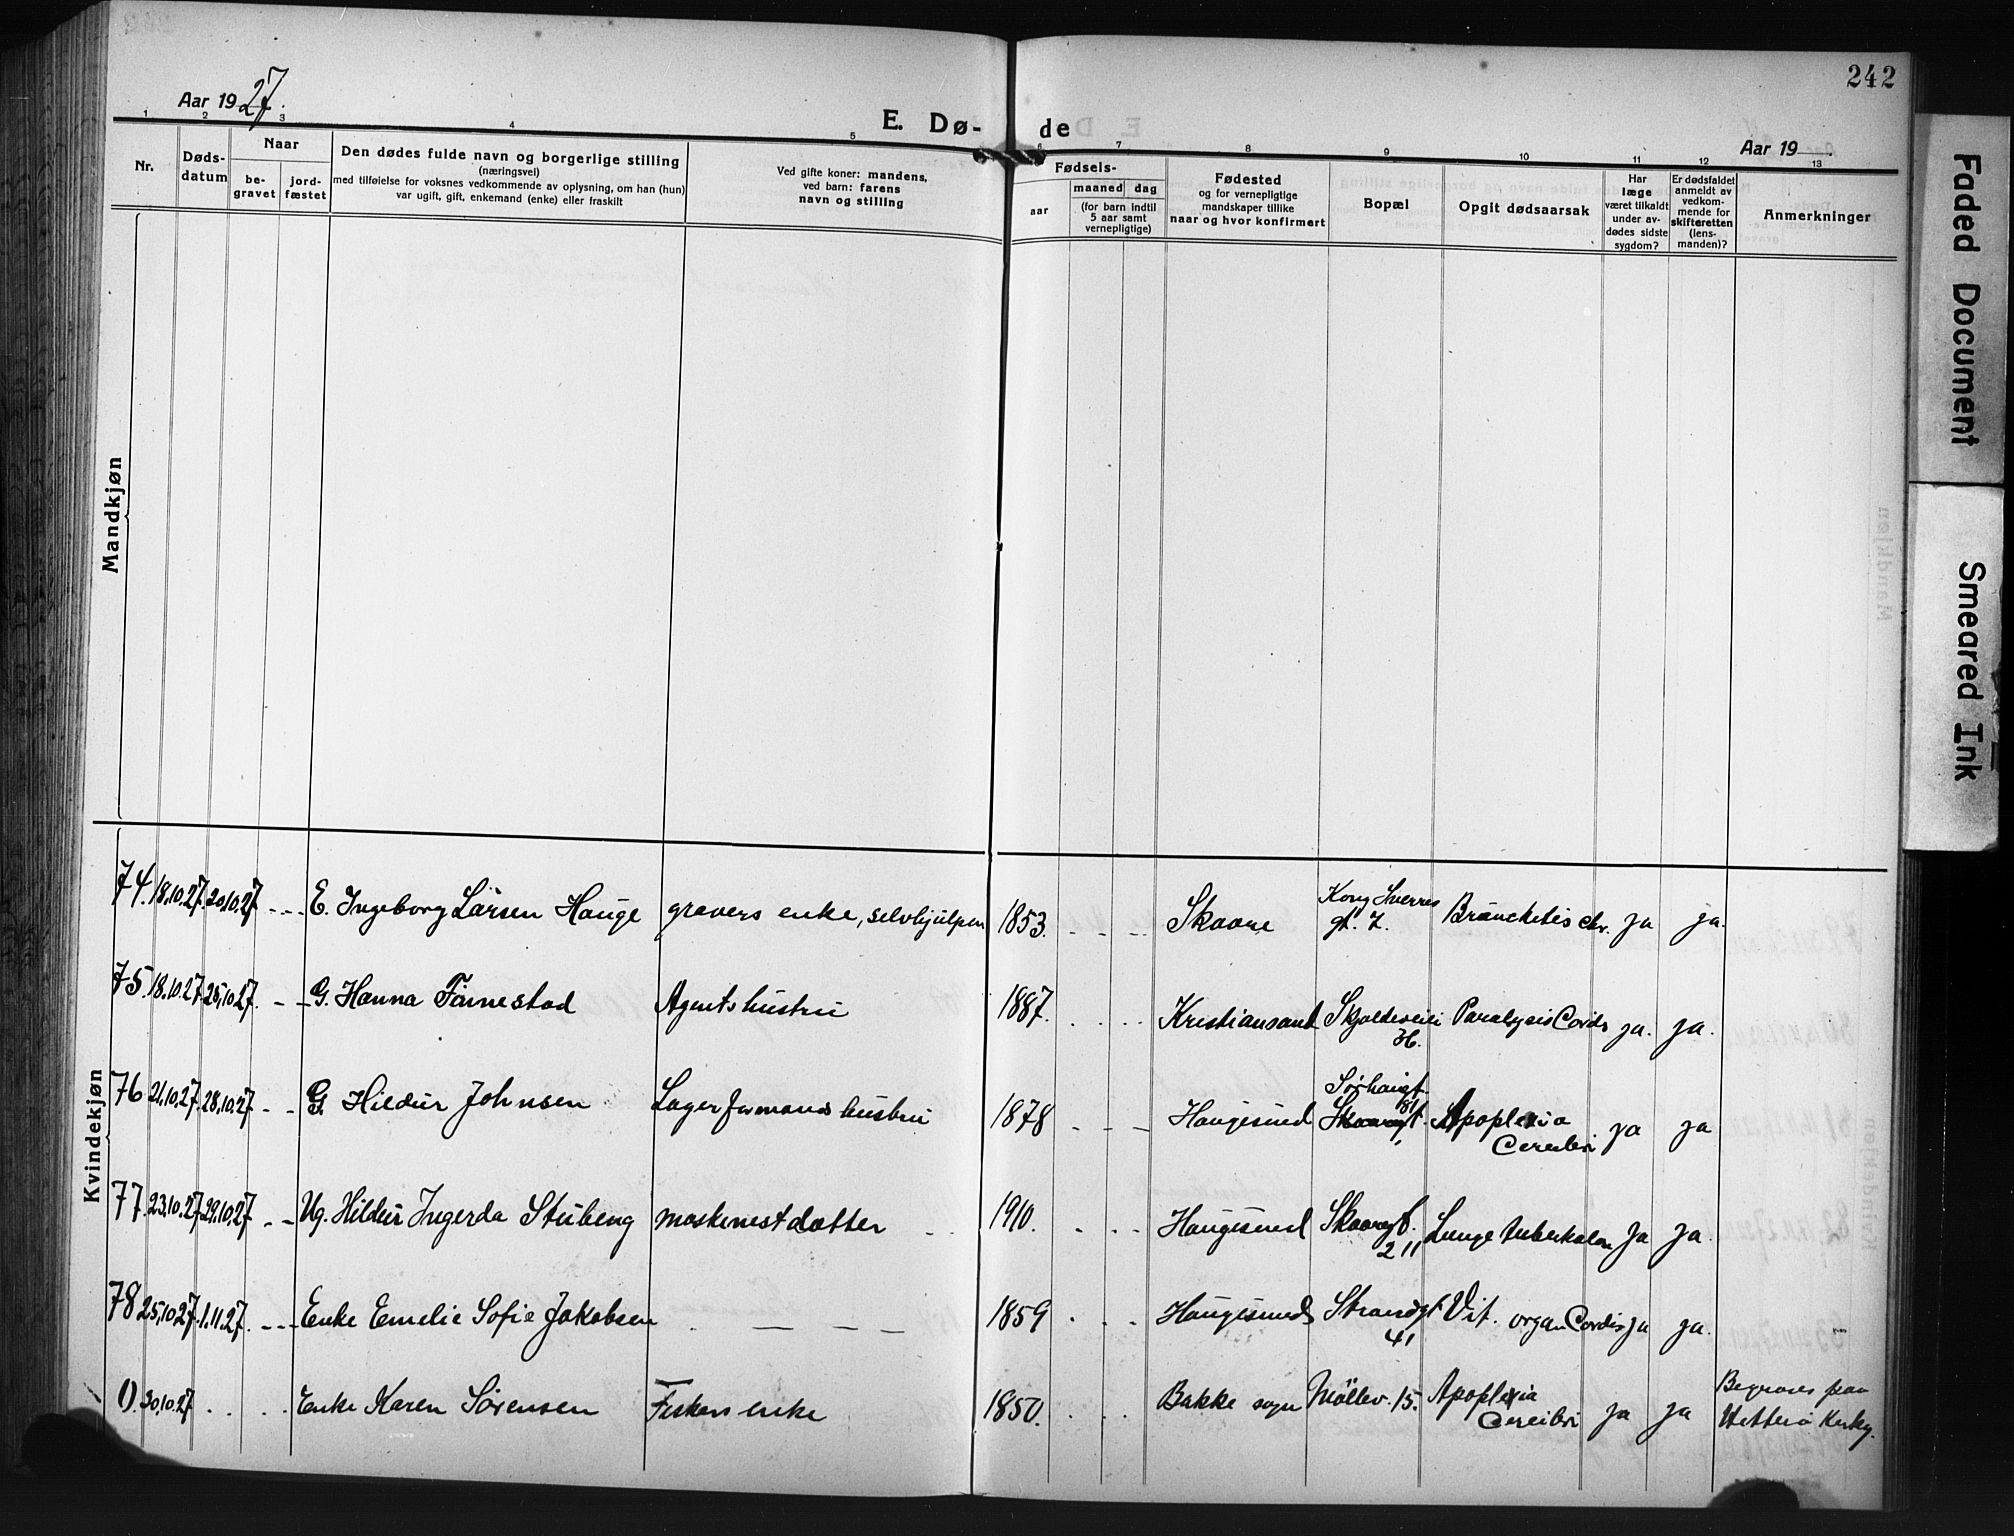 242
Aar 1927.
E. Dø-
de
Aar 19
1 2 3 4 5 6 7 8 9 10 11 12 13
Nr.
Døds-
datum
Naar
be-
gravet
jord-
fæstet
Den dødes fulde navn og borgerlige stilling
(næringsvei)
med tilføielse for voksnes vedkommende av oplysning, om han (hun)
var ugift, gift, enkemand (enke) eller fraskilt
Ved gifte koner: mandens,
ved barn: farens
navn og stilling
Fødsels-
aar
maaned dag
(for barn indtil
5 aar samt
vernepligtige)
Fødested
og for vernepligtige
mandskaper tillike
naar og hvor konfirmert
Bopæl
Opgit dødsaarsak
Har
læge
været tilkaldt
under av-
dødes sidste
sygdom?
Er dødsfaldet
anmeldt av
vedkom-
mende for
skifteretten
(lens-
manden)?
Anmerkninger
Mandkjøn
Kvindekjøn
74. 18.10.27. 20.10.27 - - - E. Ingeborg Larsen Hauge gravers enke, selvhjulpen 1853. - - - Skaare Kong Sverres gt. 7. chr. ja ja.
75. 18.10.27. 25.10.27. - - G. Hanna Agents hustru 1887. . . . Kristiansand 36. Paralysis Cordis ja. ja.
76 21.10.27. 28.10.27 - - G. Hildur Johnsen Lagerformands hustru 1878 - - - Haugesund Sørhauggt. 181 Skaaregt. Apoplexia Cerebri ja ja
77. 23.10.27. 29.10.27 - - Ug. Hildur Ingerda maskinist datter - - 1910. . . . Haugesund Skaaregt. 211 Lunge tuberkulose ja ja.
78 25.10.27. 1.11.27. - - - Enke Emelie Sofie Jakobsen - — — — 1859 . . . Haugesund Strandgt. 41 Vit. organ Cordis ja ja.
0) 30.10.27 . . . . Enke Karen Sørensen Fiskers enke 1850. . . . Bakke sogn Møllev. 15. Apoplexia Cerebri ja ja Begraves paa
Faded Document
Smeared Ink